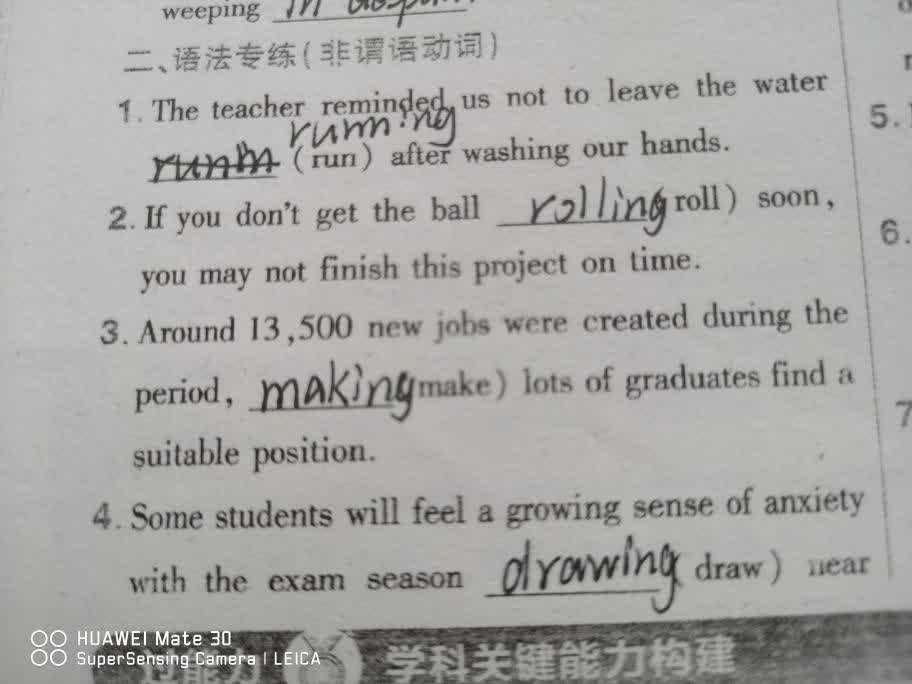 weeping in
二、语法专练(非谓语动词)
1. The teacher reminded us not to leave the water
running
(run) after washing our hands.
2. If you don't get the ball rolling roll) soon,
you may not finish this project on time.
3. Around 13,500 new jobs were created during the
period, making make) lots of graduates find a
suitable position.
4. Some students will feel a growing sense of anxiety
with the exam season drawing draw) near
5.
6.
7
HUAWEI Mate 30
SuperSensing Camera | LEICA
学科关键能力构建